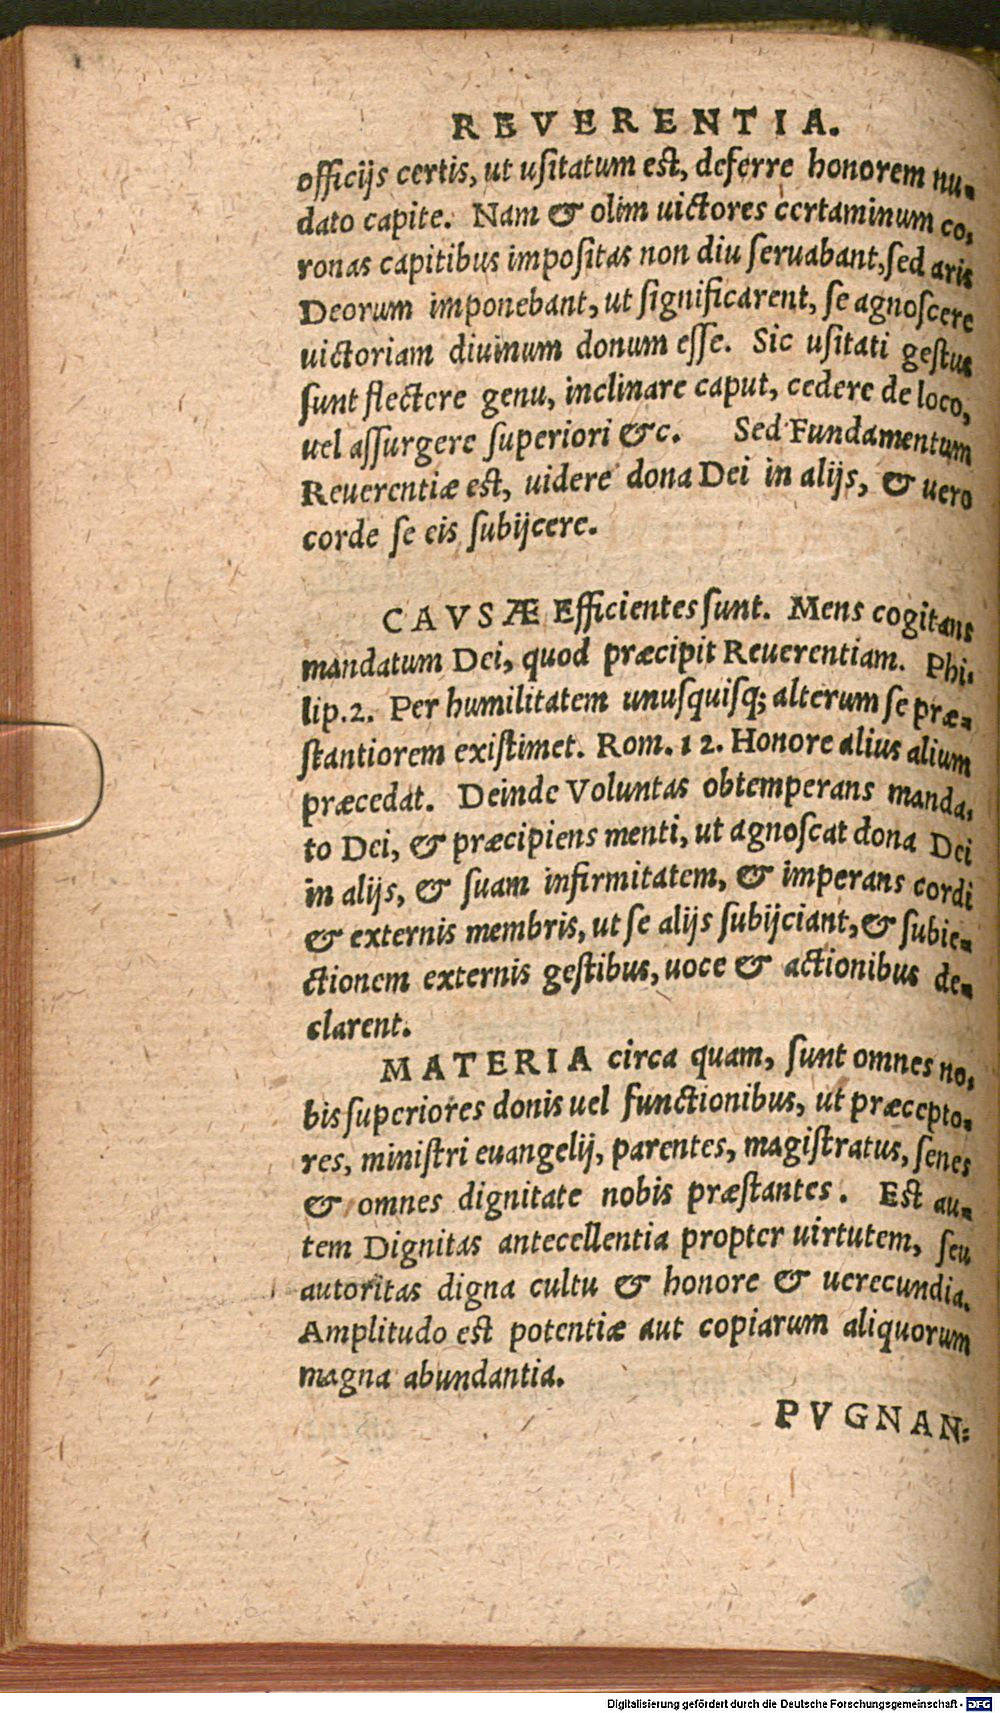 REVERENTIA.
officijs certis, ut uſitatum est, deferre honorem nu-
dato capite. Nam & olim uictores certaminum co,
ronas capitibus impoſitas non diu ſeruabant, ſed aris
Deorum imponebant, ut ſignificarent, ſe agnoſcere
uictoriam diuinum donum eſſe. Sic uſitati geſtus
ſunt flectere genu, inclinare caput, cedere de loco,
uel aſſurgere ſuperiori &c. Sed Fundamentum
Reuerentiæ est, uidere dona Dei in alijs, & uero
corde ſe eis ſubijcere.
CAVSÆ Efficientes ſunt. Mens cogitans
mandatum Dei, quod præcipit Reuerentiam. Phi-
lip. 2. Per humilitatem unuſquiſq; alterum ſe præ-
ſtantiorem exiſtimet. Rom. 12. Honore alius alium
præcedat. Deinde Voluntas obtemperans manda,
to Dei, & præcipiens menti, ut agnoſcat dona Dei
in alijs, & ſuam infirmitatem, & imperans cordi
& externis membris, ut ſe alijs ſubijciant, & ſubie-
ctionem externis geſtibus, uoce & actionibus de-
clarent.
MATERIA circa quam, ſunt omnes no,
bis ſuperiores donis uel functionibus, ut præcepto-
res, miniſtri euangelij, parentes, magiſtratus, ſenes
& omnes dignitate nobis præſtantes. Est au-
tem Dignitas antecellentia propter uirtutem, ſeu
autoritas digna cultu & honore & uerecundia.
Amplitudo est potentiæ aut copiarum aliquorum
magna abundantia.
PVGNAN:
Digitalisierung gefördert durch die Deutsche Forschungsgemeinschaft - DFG